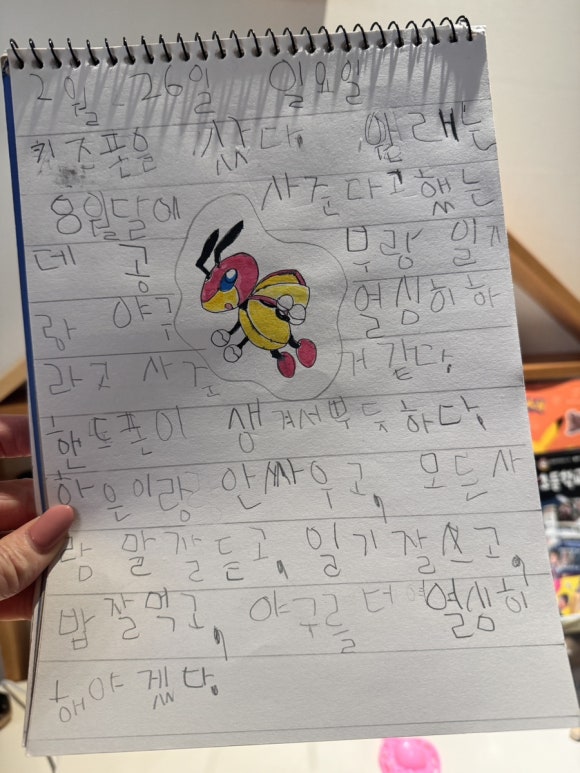 2월 26일 일요일
키즈폰을 샀다. 얜래는
8월달에 사준다고 했는
데 공부랑 일기
랑 야구 열심히 하
라고 사준거 같다.
핸드폰이 생겨서 뿌듯하다.
하은이랑 안싸우고, 모든 사
람 말 잘 듣고, 일기 잘 쓰고,
밥 잘 먹고, 야구를 더 열심히
해야겠다.